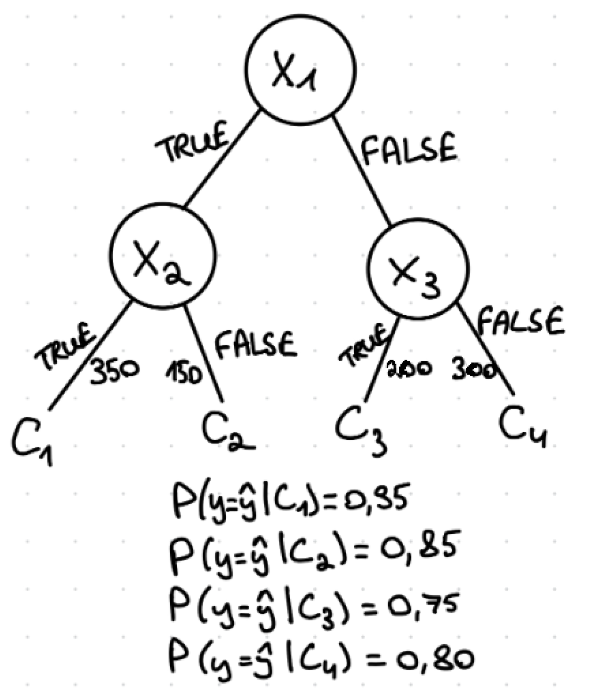 X1
TRUE FALSE
X2 X3
TRUE 350 150 FALSE TRUE 200 300 FALSE
C1 C2 C3 C4
P(y=ŷ|C1)=0,95
P(y=ŷ|C2)=0,85
P(y=ŷ|C3)=0,75
P(y=ŷ|C4)=0,80